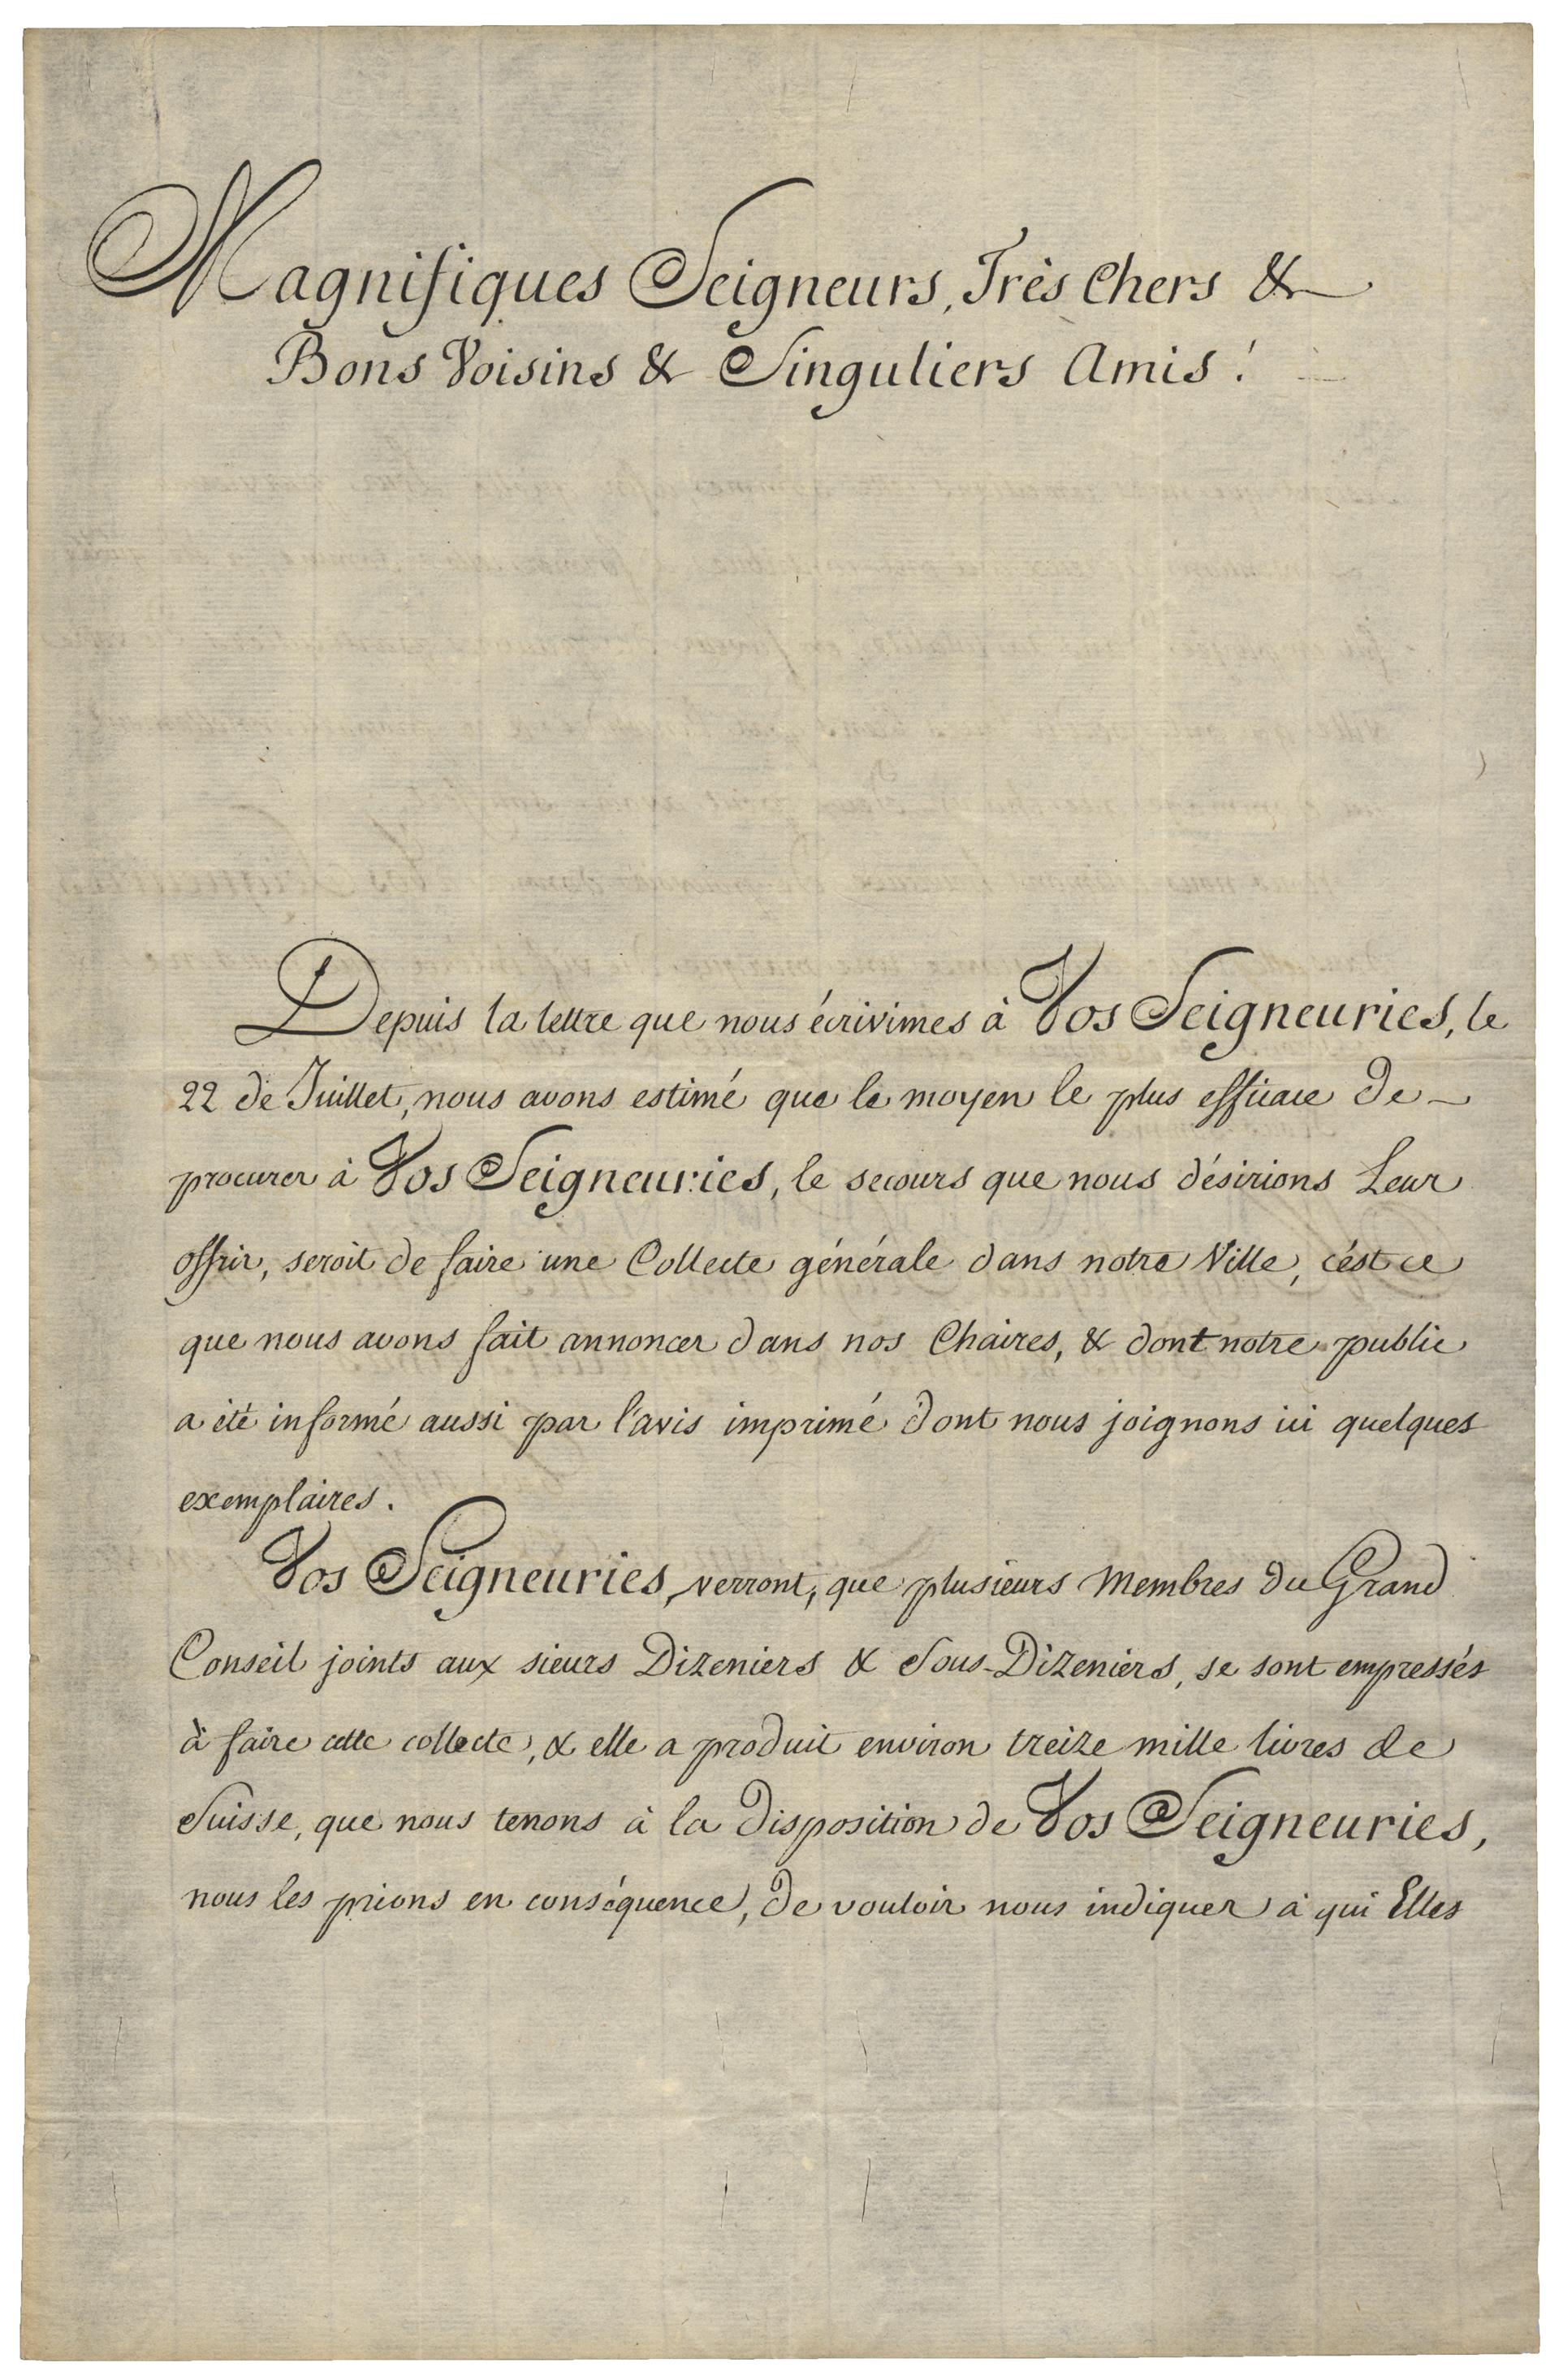 Magnifiques Seigneurs, Très Chers &
Bons Voisins & Singuliers Amis!
Depuis la lettre que nous écrivimes à Vos Seigneuries, le
22 de Juillet, nous avons estimé que le moyen le plus efficace de
procurer à Vos Seigneuries, le secours que nous désirions Leur
offrir, seroit de faire une Collecte générale dans notre Ville, c'est ce
que nous avons fait annoncer dans nos Chaires, & dont notre public
a été informé aussi par l'avis imprimé dont nous joignons ici quelques
exemplaires.
Vos Seigneuries, verront, que plusieurs Membres du Grand
Conseil joints aux sieurs Dizeniers & Sous-Dizeniers, se sont empressés
à faire cette collecte, & elle a produit environ treize mille livres de
Suisse, que nous tenons à la disposition de Vos Seigneuries,
nous les prions en conséquence, de vouloir nous indiquer à qui Elles